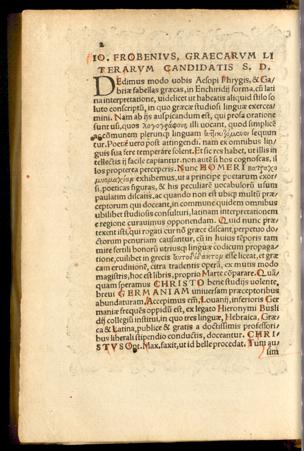 2
IO. FROBENIVS, GRAECARVM LI
TERARVM CANDIDATIS S. D.
DEdimus modo uobis Aesopi Phrygis, & Ga
briæ fabellas græcas, in Enchiridij forma, cũ lati
na interpretatione, uidelicet ut habeatis aliquid stilo so
luto conscriptũ, in quo græcæ studiosi linguæ exerce‐
mini. Nam ab ijs auspicandum est, qui prosa oratione
sunt usi, quos illi uocant, quod simplicẽ
cõmunem plerunq; linguam sequun
tur. Poetæ uero post attingendi. nam ex omnibus lin‐
guis sua fere temperare solent. Et sic res habet, ut illis in
tellectis ij facile capiantur. non autẽ si hos cognoscas, il
los propterea perceperis. Nunc HOMERI
exhibemus, ut a principe poetarum exor‐
si, poeticas figuras, & his peculiarẽ uocabulorũ usum
paulatim discatis, ac quando non est ubiq; multũ præ‐
ceptorum qui doceant, in commune quidem omnibus
ubilibet studiosis consulturi, latinam interpretationem
e regione curauimus opponendam. Quid nunc præ‐
texent isti, qui rogati cur nõ græce discant, perpetuo do
ctorum penuriam causantur, cũ in huiusce tẽporis tam
mire fertili bonorũ utriusq; linguæ codicum propaga‐
tione, cuilibet in græcis esse liceat, et græ
cam eruditionẽ, citra tradentis operã, ex mutis modo
magistris, hoc est libris, proprio Marte cõparare. Quã
quam speramus CHRISTO bene studijs uolente,
breui GERMANIAM uniuersam præceptoribus
abundaturam. Accepimus em̃, Louanij, inferioris Ger
maniæ frequẽs oppidũ est, ex legato Hieronymi Busli
dij collegiũ institui, in quo tres linguæ, Hebraica, Græ‐
ca & Latina, publice & gratis a doctissimis professori‐
bus liberali stipendio conductis, doceantur. CHRI‐
STVS Opt. Max. faxit, ut id belle procedat. Tum qui
sim